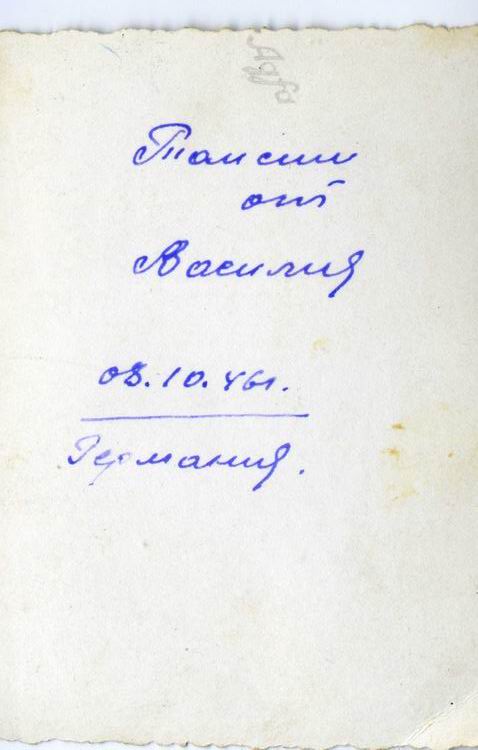 Agfa
Таисии
от
Василия
03.10.46г.
Германия.